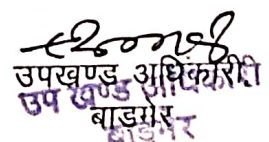 उपखण्ड अधिकारी
उप खण्ड अधिकारी
बाड़मेर
बाड़मेर